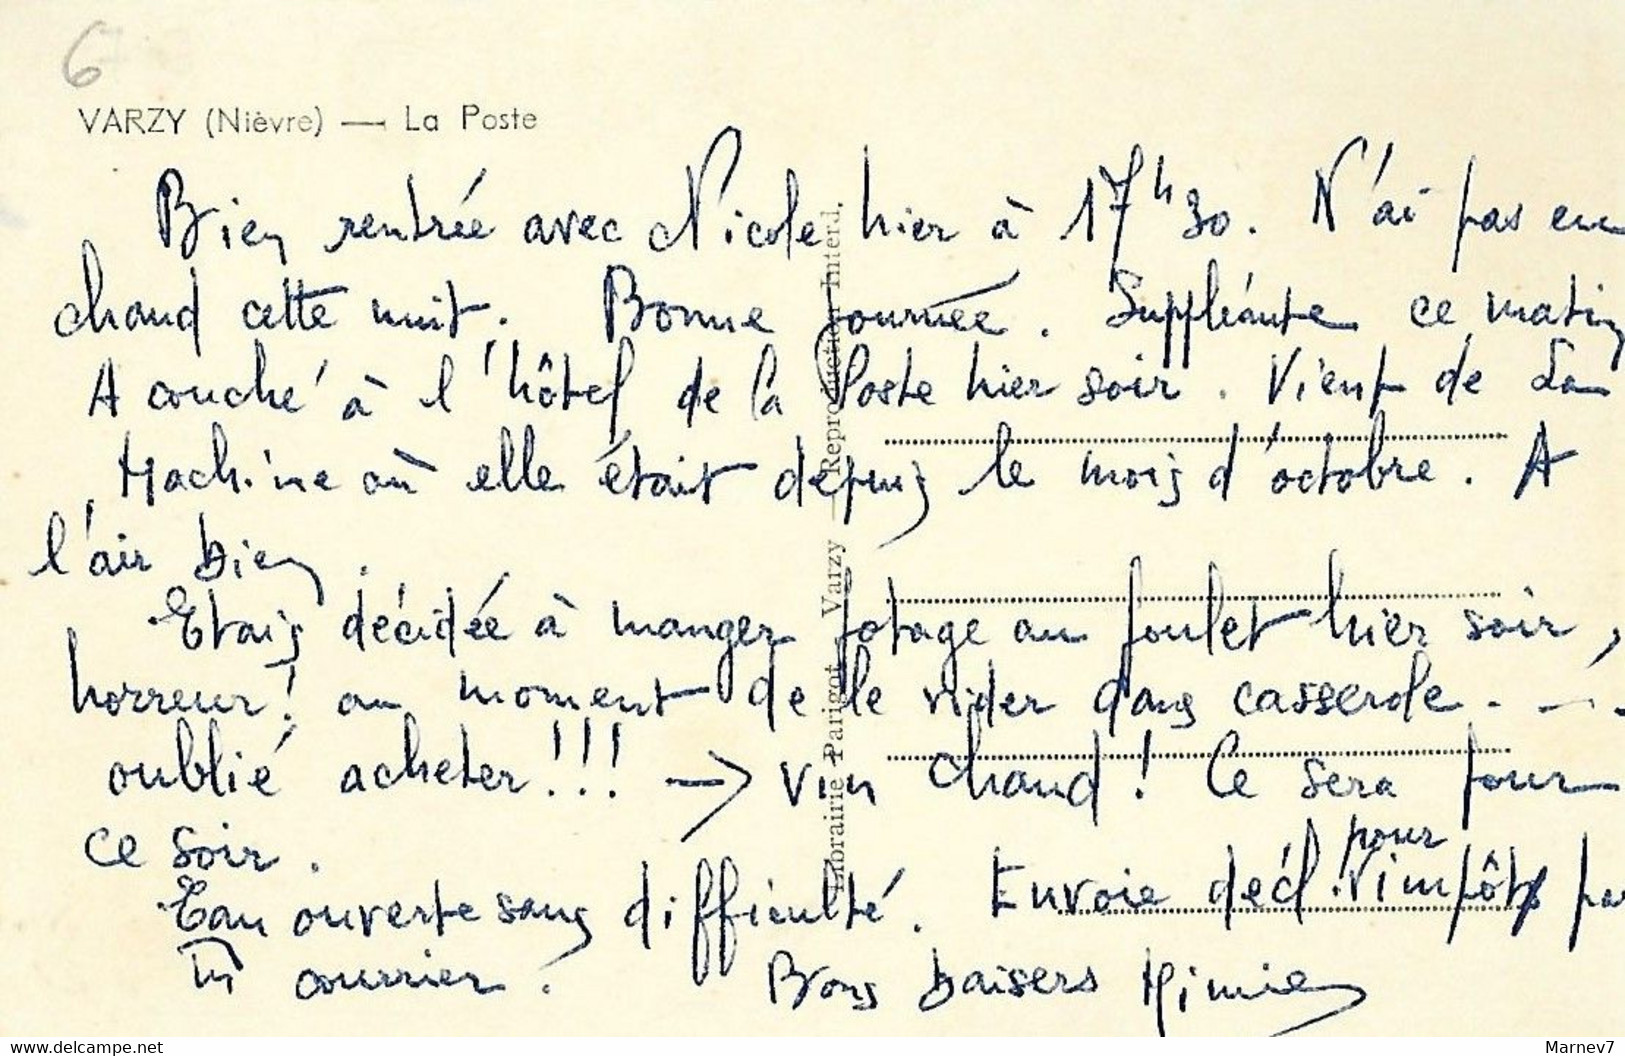 6
VARZY (Nièvre) — La Poste
Bien rentrée avec Nicole hier à 17h30. N'ai pas eu
chaud cette nuit. Bonne journée. Suppléante ce matin
A couché à l'hôtel de la Poste hier soir. Vient de La
Machine où elle était depuis le mois d'octobre. A
l'air bien.
Etais décidée à manger potage au poulet hier soir,
horreur! au moment de le vider dans casserole. - - .
oublié acheter!!! → vin chaud! Ce sera pour
ce soir.
pour
Eau ouverte sans difficulté. Envoie décl. impôts par
courrier. Bons baisers Mimie
Librairie Parigot, Varzy — Reproduction Interd.
http://www.delcampe.net
Marnev7